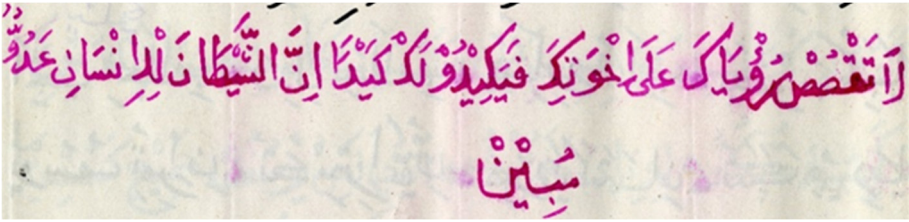 لَا تَقْصُصْ رُؤْيَاكَ عَلَى اِخْوَتِكَ فَيَكِيْدُوْ لَكَ كَيْدًا اِنَّ الشَّيْطَانَ لِلْاِنْسَانِ عَدُوٌّ
مُبِيْنْ